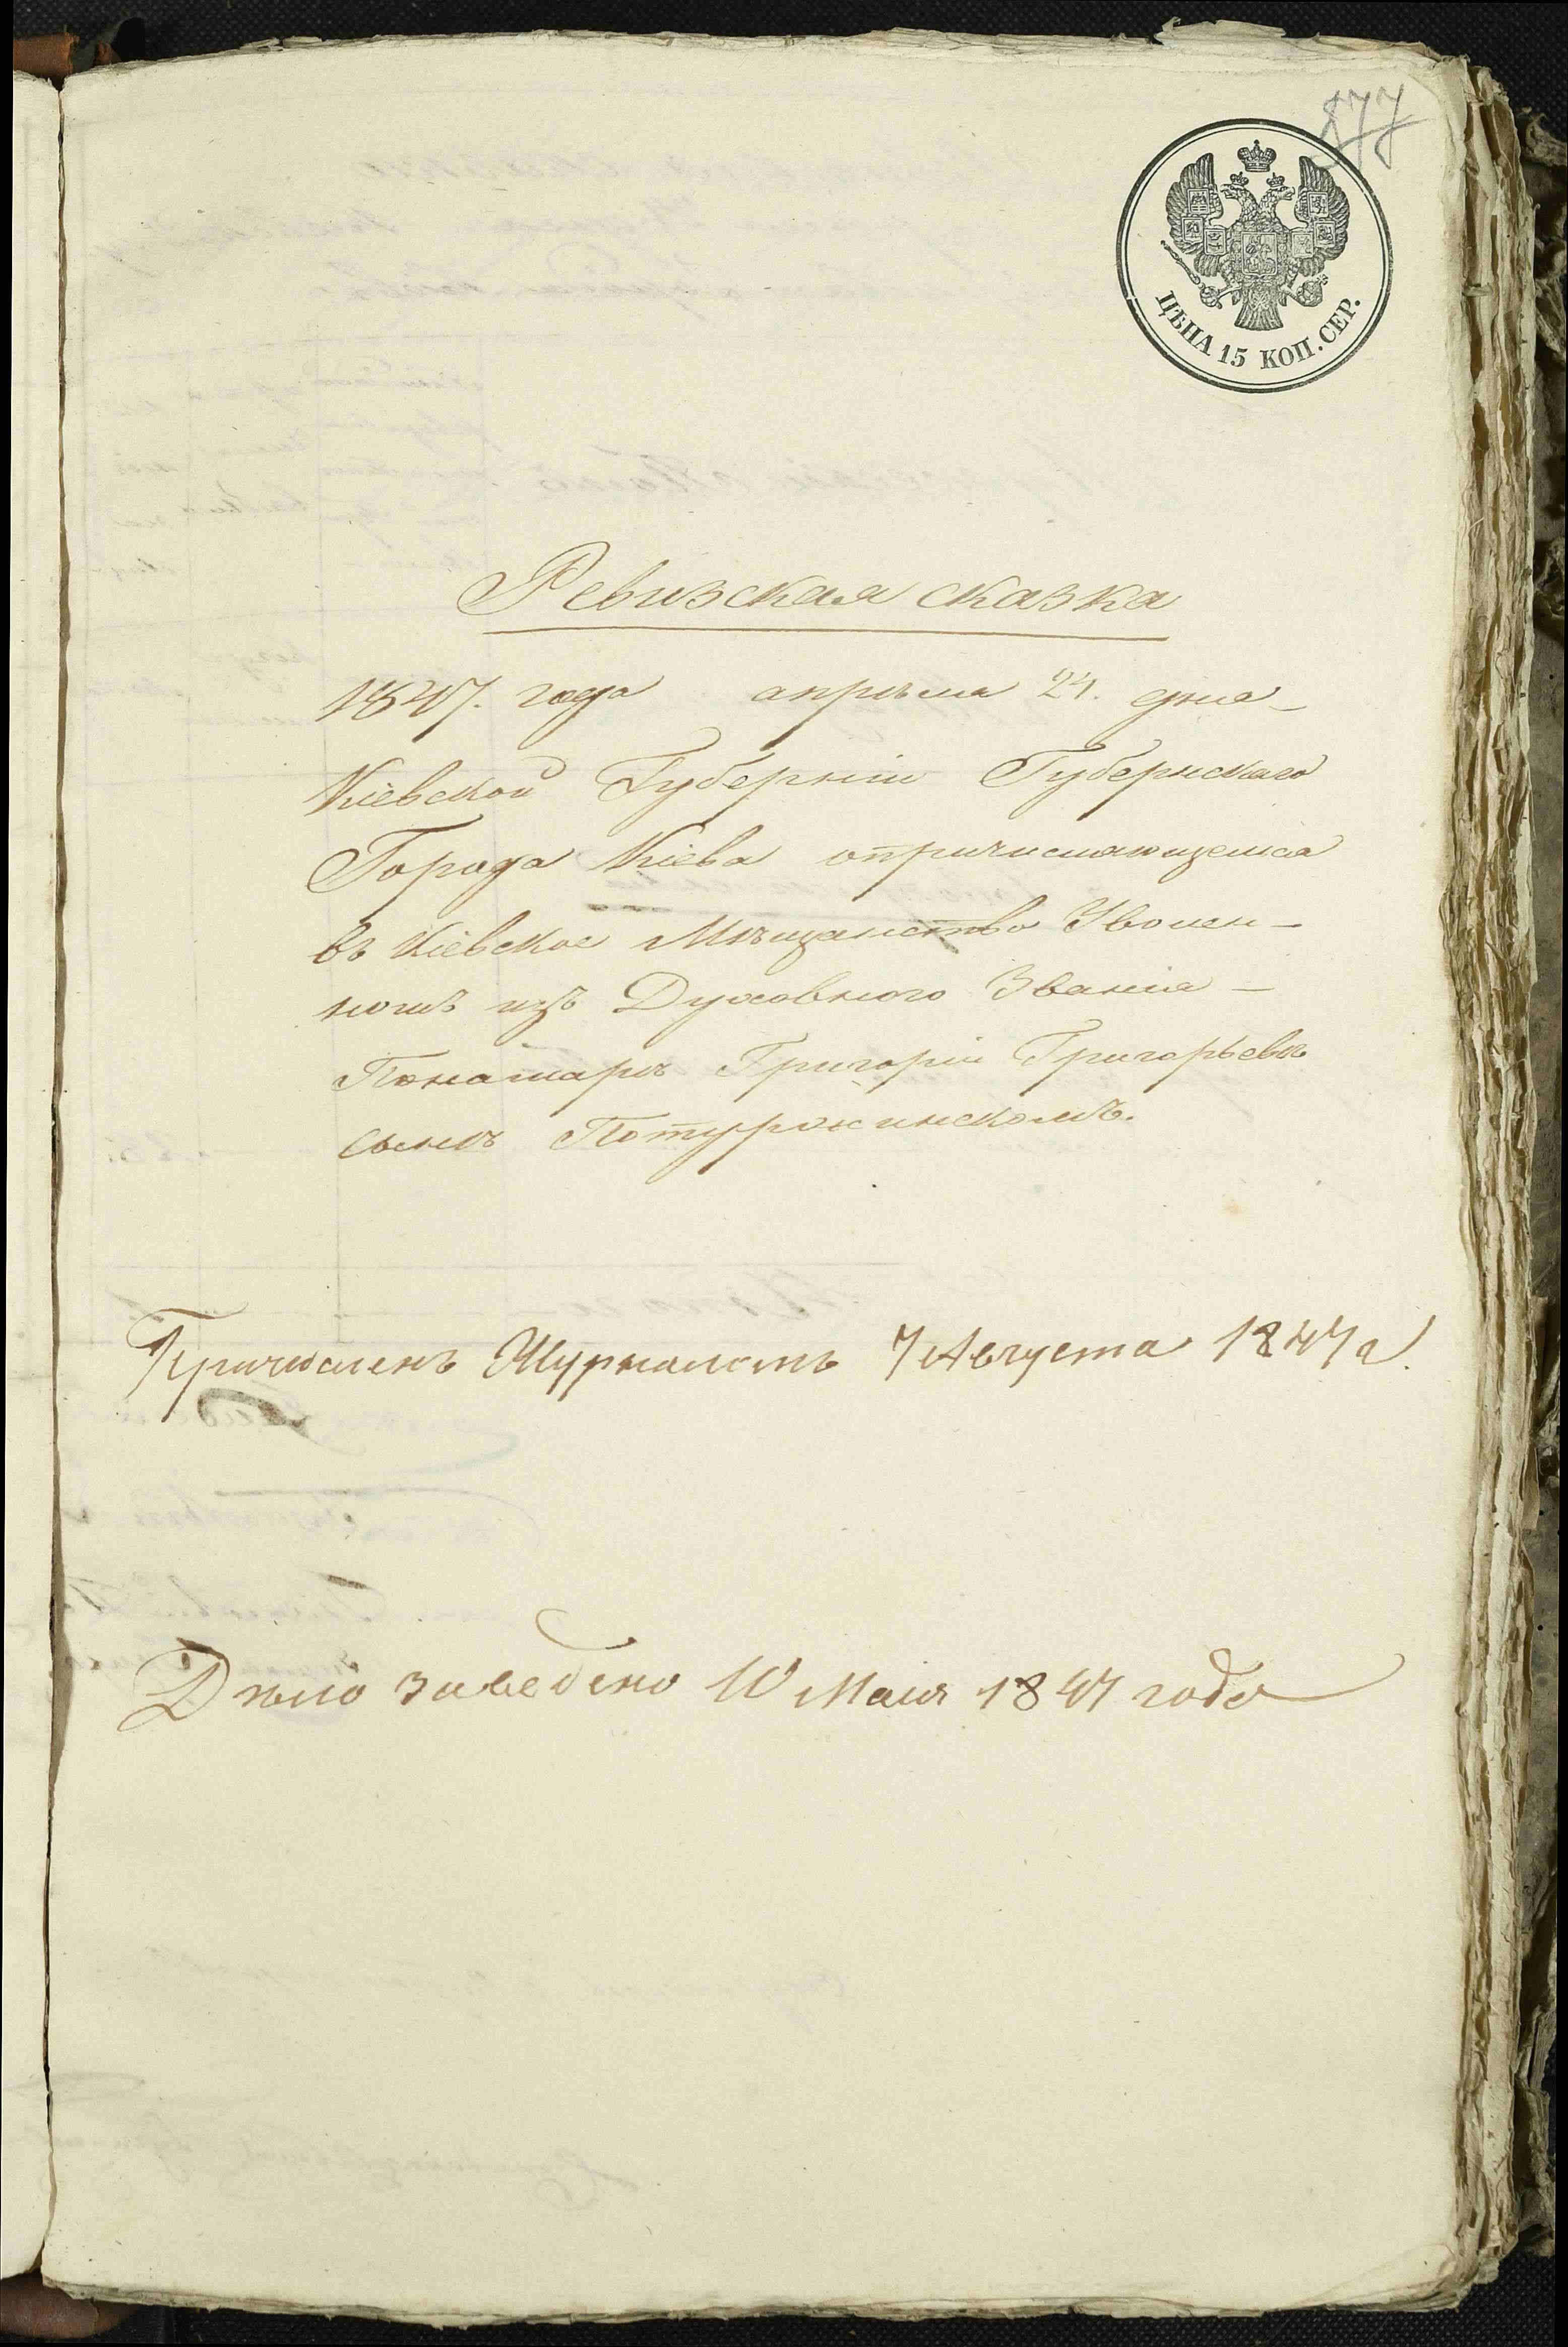 877
ЦѢНА 15 КОП. СЕР.
Ревизская сказка
1847. года апрѣля 24. дня
Кіевской Губерніи Губернскаго
Города Кіева опричисляющемся
въ Кіевское Мѣщанство Уволен-
номъ изъ Духовного Званія
Понамарѣ Григоріи Григорьевѣ
сынѣ
Причисленъ Журналомъ 7 Августа 1847 г.
Дѣло заведено 10 Маія 1847 года